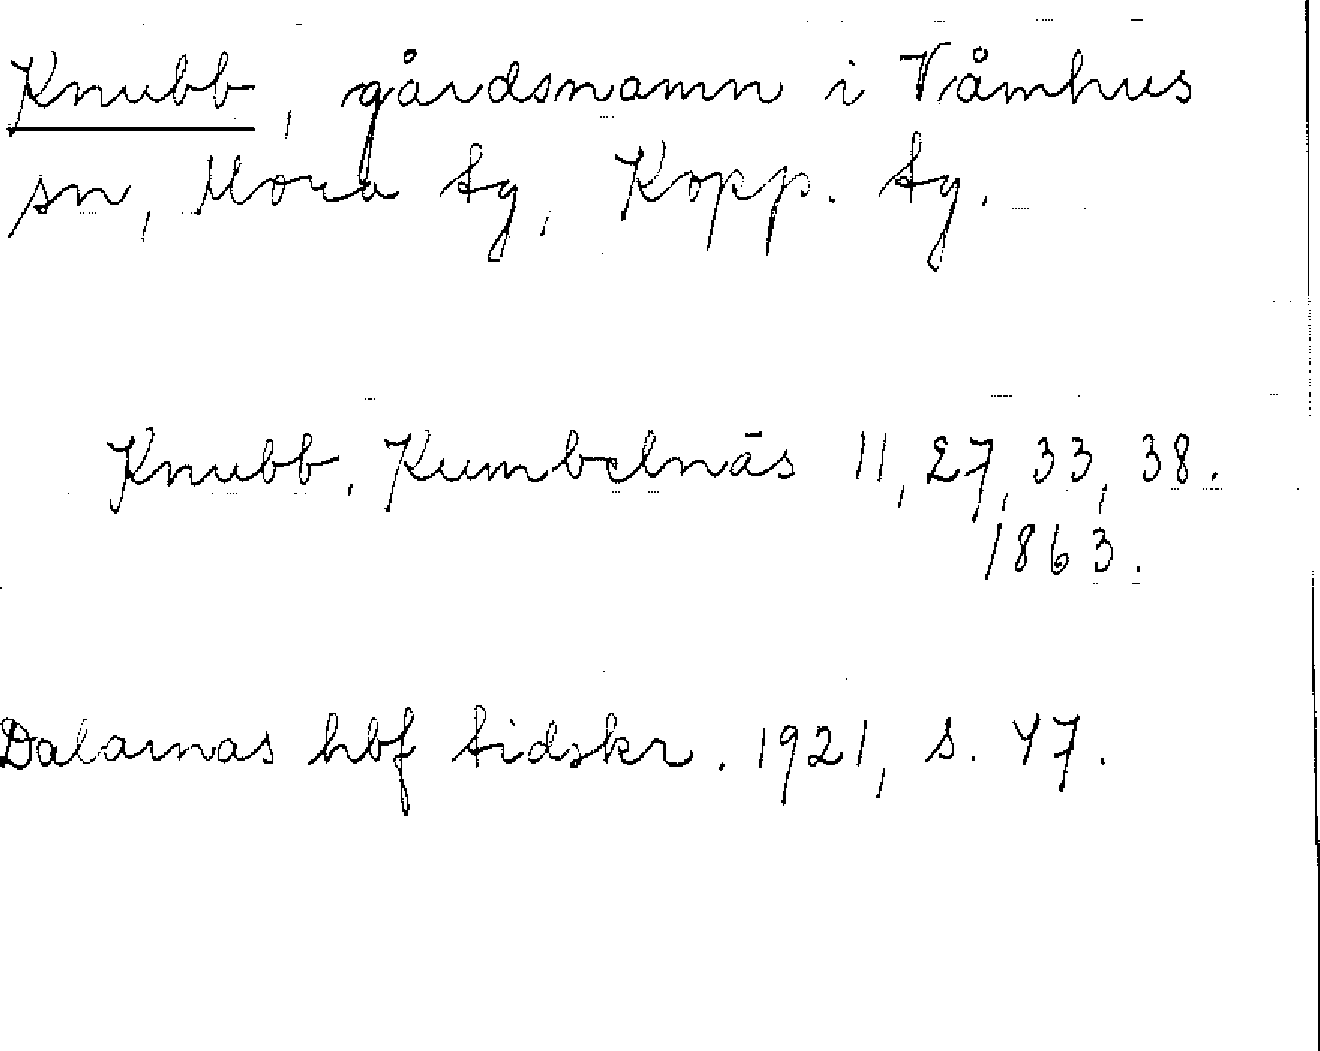 Knubb, gårdsnamn i Våmhus
sn, Mora tg, Kopp. tg.
Knubb, Kumbelnäs 11, 27, 33, 38.
1863.
Dalarnas hbf tidskr. 1921, s. 47.